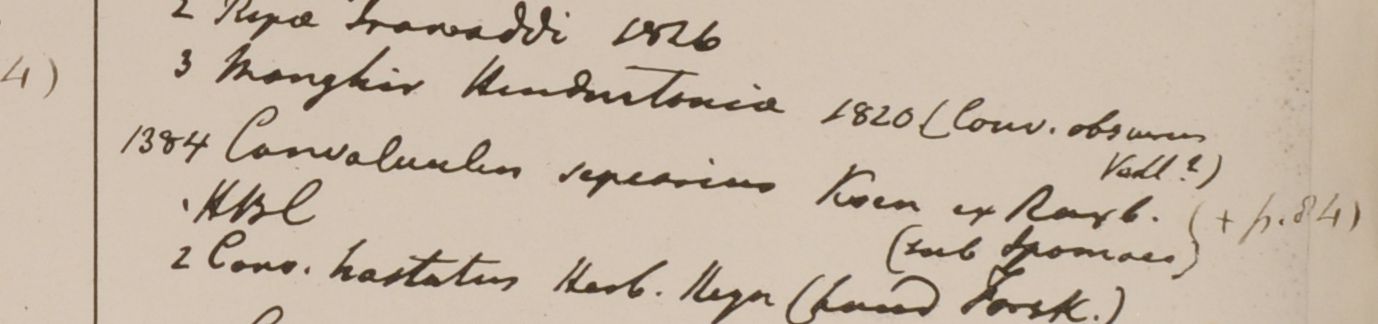 2 Ripa Irawaddi 1826
4)
3 Monghir Hindustania 1820 (Conv. obscurus
Vahl?)
1384 Convolvulus sepiarius Koen ex Roxb.
(sub Ipomoea) (+ p. 84)
.HBC
2 Conv. hastatus Herb. Heyn (haud Forsk.)